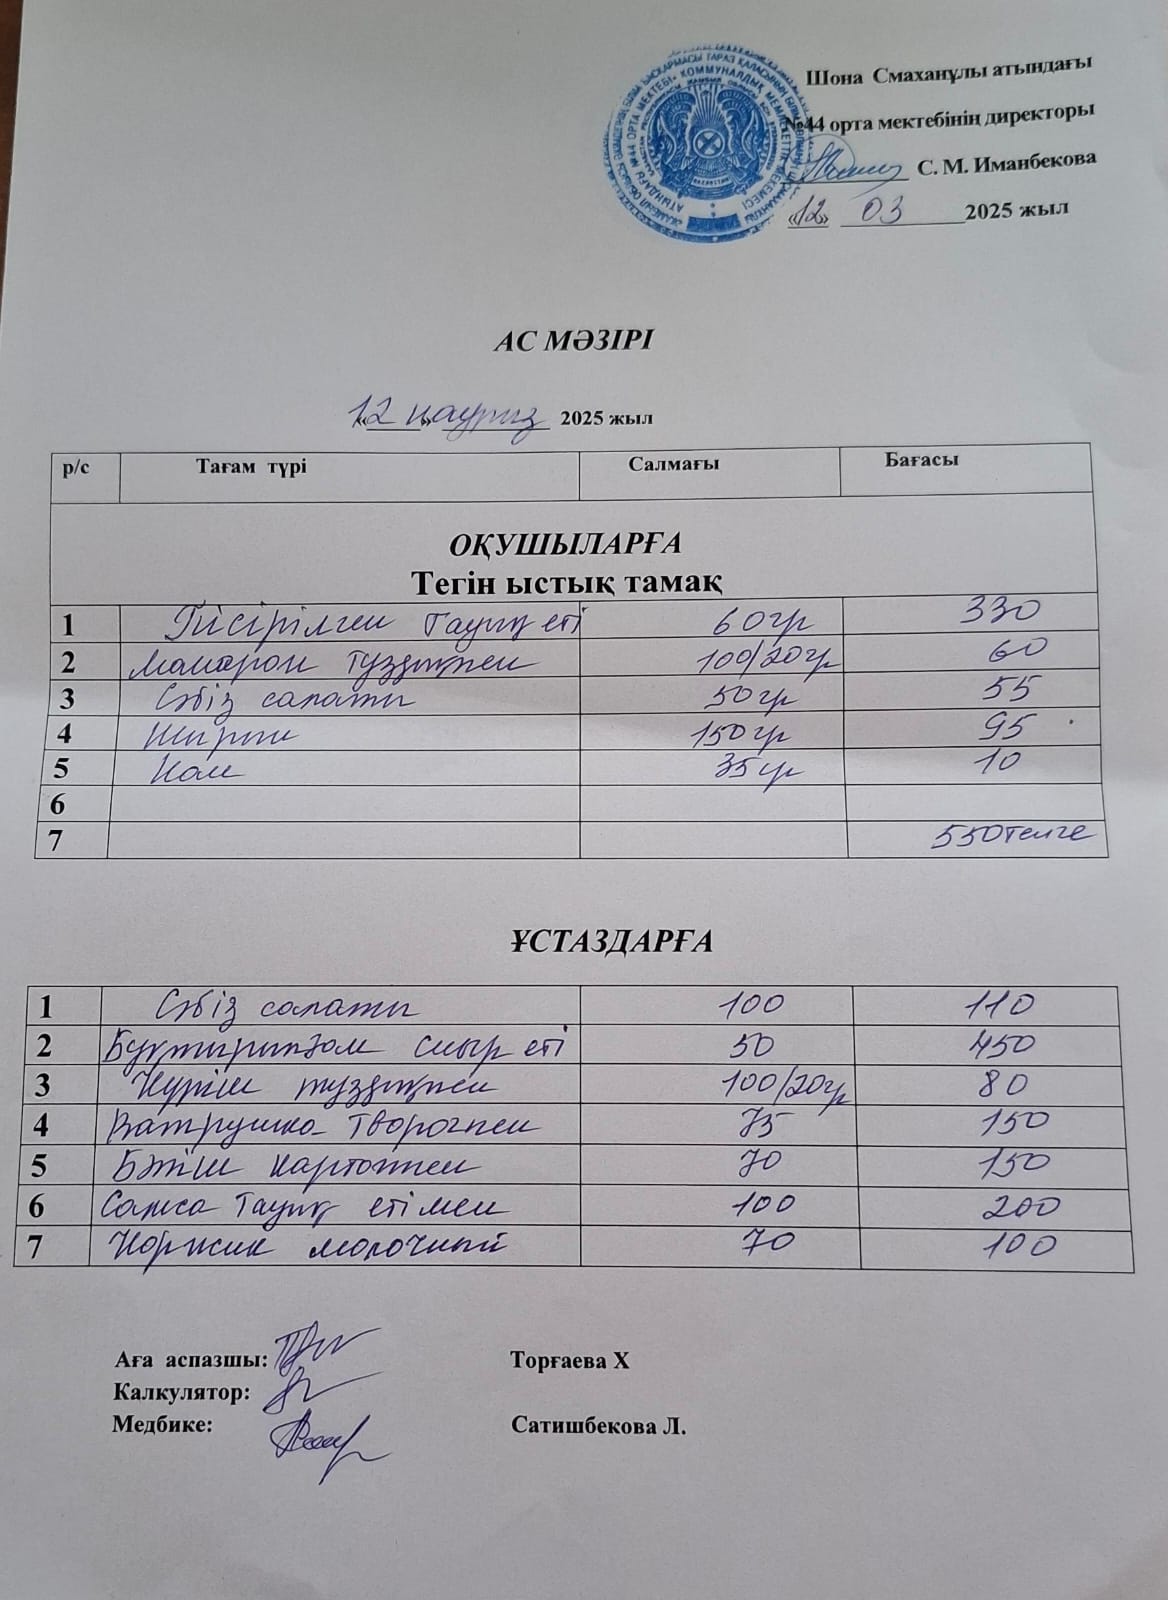 Шона Смаханұлы атындағы
№44 орта мектебінің директоры
С. М. Иманбекова
«12» 03 2025 жыл
АС МӘЗІРІ
«12» наурыз 2025 жыл
р/с Тағам түрі Салмағы Бағасы
ОҚУШЫЛАРҒА
Тегін ыстық тамақ
1 Пісірілген тауық еті 60гр 330
2 Макарон тұздықпен 100/20гр 60
3 Сәбіз салаты 50гр 55
4 Шырын 150гр 95
5 Нан 35гр 10
6
7 550теңге
ҰСТАЗДАРҒА
1 Сәбіз салаты 100 110
2 Бұқтырылған сиыр еті 50 450
3 Күріш тұздықпен 100/20гр 80
4 Ватрушка творогпен 75 150
5 Бәліш картоппен 70 150
6 Самса тауық етімен 100 200
7 Коржик молочный 70 100
Аға аспазшы: Торғаева Х
Калкулятор:
Медбике: Сатишбекова Л.